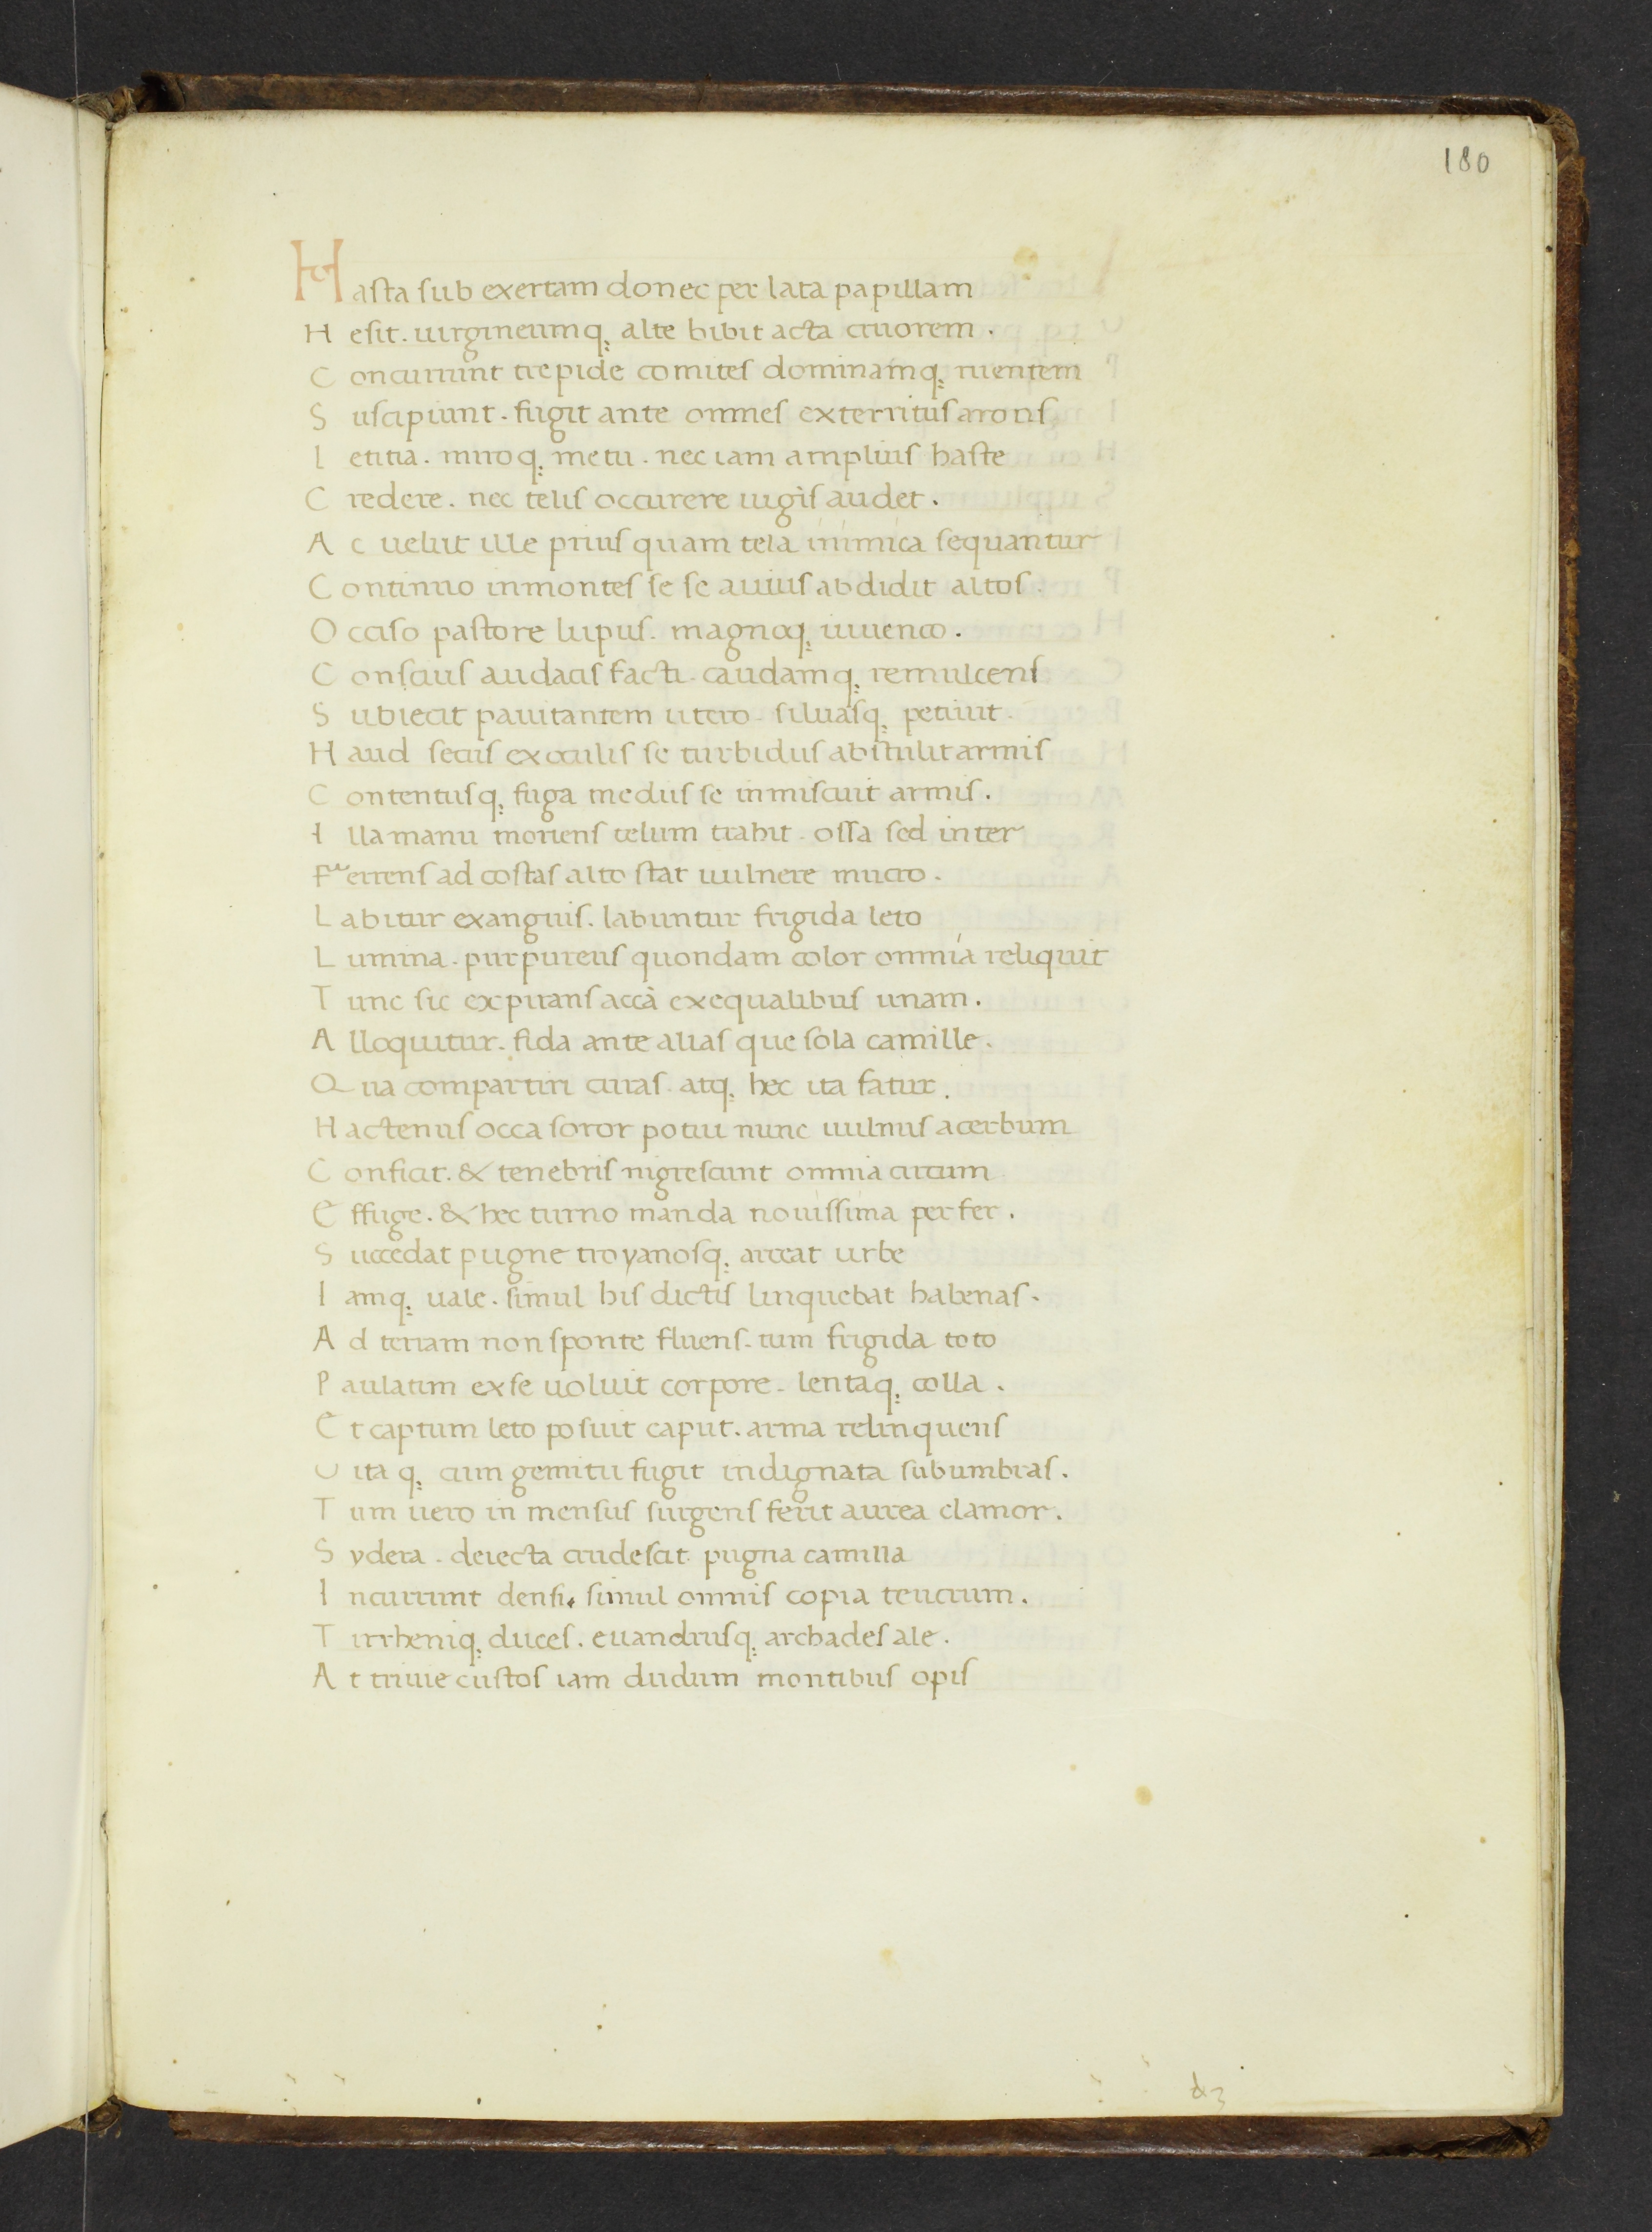 180
Hasta sub exertam donec per lata papillam
Hesit. uirgineumq; alte bibit acta cruorem.
Concurrunt trepide comites dominamq; ruentem
Suscipiunt. fugit ante omnes exterritus arons
letitia. miroq; metu. nec iam amplius haste
Credere. nec telis occurere uigis audet.
Ac uelut ille prius quam tela inimica sequantur
Continuo inmontes se se auius abdidit altos.
Occiso pastore lupus. magnoq; iuuenco.
Conscius audacis facti. caudamq; remulcens
Subiecit pauitantem utero. siluasq; petiuit.
Haud secus exoculis se turbidus abstulit armis
Contentusq; fuga mediis se inmiscuit armis.
Illa manu moriens telum trahit. ossa sed inter
Fuerrens ad costas alto stat uulnere mucro.
Labitur exanguis. labuntur frigida leto
Lumina. purpureus quondam color omnia reliquit
Tunc sic expirans accà exequalibus unam.
Alloquitur. fida ante alias que sola camille.
Qua compartiri curas. atq; hec ita fatur.
Hactenus occa soror potui nunc uulnus acerbum
Conficit. & tenebris nigrescunt omnia circum
Effuge. & hec turno manda nouissima perfer.
Succedat pugne troyanosq; arceat urbe
Iamq; uale. simul his dictis linquebat habenas.
Ad terram non sponte fluens. tum frigida toto
Paulatim exse uoluit corpore. lentaq; colla.
Et captum leto posuit caput. arma relinquens
Uitaq; cum gemitu fugit indignata subumbras.
Tum uero in mensus surgens ferit aurea clamor.
Sydera. deiecta crudescit pugna camilla
Incurrunt densi. simul omnis copia teucrum.
Tirrheniq; duces. euandrusq; archades ale.
At triuie custos iam dudum montibus opis